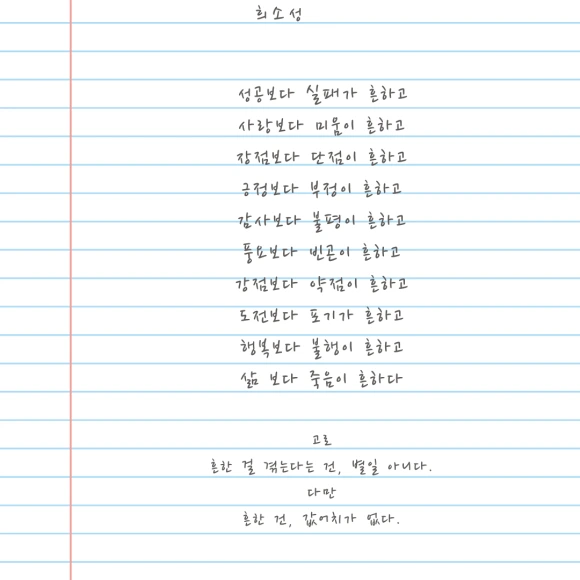 희소성
성공보다 실패가 흔하고
사랑보다 미움이 흔하고
장점보다 단점이 흔하고
긍정보다 부정이 흔하고
감사보다 불평이 흔하고
풍요보다 빈곤이 흔하고
강점보다 약점이 흔하고
도전보다 포기가 흔하고
행복보다 불행이 흔하고
삶 보다 죽음이 흔하다
고로
흔한 걸 겪는다는 건, 별일 아니다.
다만
흔한 건, 값어치가 없다.